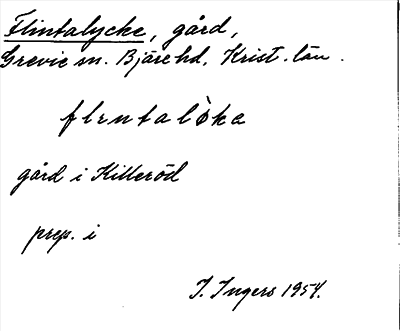 Flintalycke, gård,
Grevie sn. Bjäre hd. Krist. län.
flentalỳka
gård i Killeröd
prep. i
I. Ingers 1954.